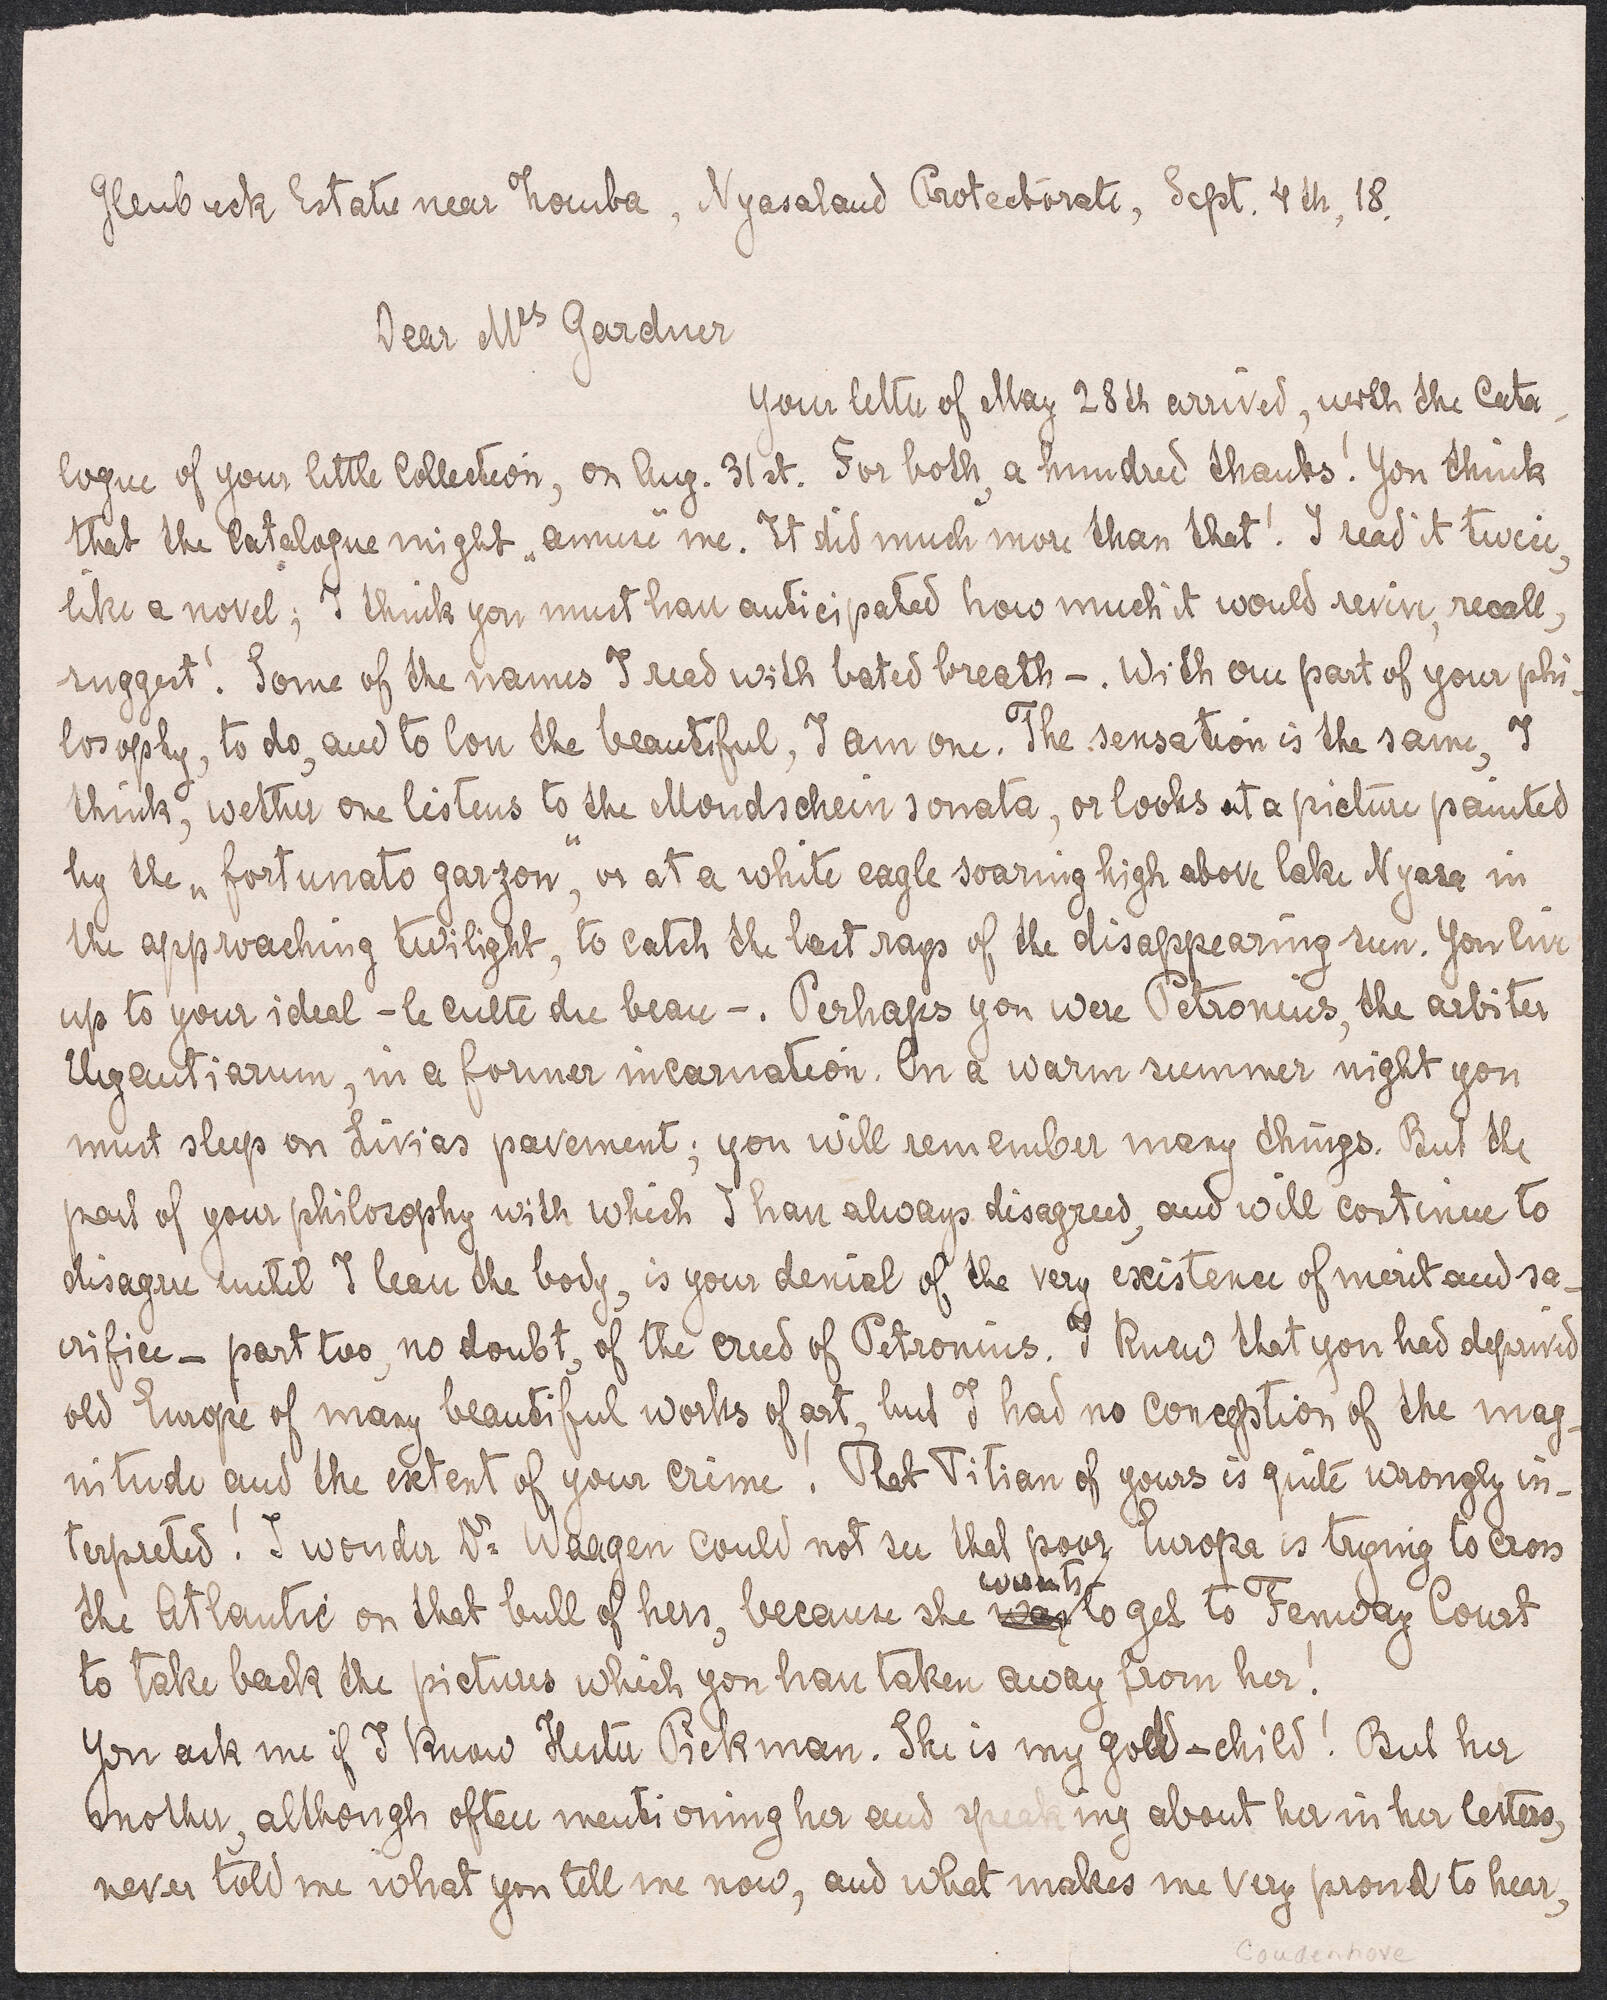 Glenbreck Estate near Zomba, Nyasaland Protectorate, Sept. 4th, 18.
Dear Mrs Gardner
Your letter of May 28th arrived, with the Cata-
logue of your little Collection, on Aug. 31st. For both, a hundred thanks! You think
that the Catalogue might „amuse" me. It did much more than that! I read it twice,
like a novel; I think you must have anticipated how much it would revive, recall,
suggest! Some of the names I read with bated breath –. With one part of your phi-
losophy, to do, and to love the beautiful, I am one. The sensation is the same, I
think, wether one listens to the Mondschein sonata, or looks at a picture painted
by the „fortunato garzon", or at a white eagle soaring high above lake Nyasa in
the approaching twilight, to catch the last rays of the disappearing sun. You live
up to your ideal – le culte du beau –. Perhaps you were Petronius, the arbiter
Elegantiarum, in a former incarnation. On a warm summer night you
must sleep on Livias pavement; you will remember many things. But the
part of your philosophy with which I have always disagreed, and will continue to
disagree until I leave the body, is your denial of the very existence of merit and sa-
crifice – part too, no doubt, of the creed of Petronius. I knew that you had deprived
old Europe of many beautiful works of art, but I had no conception of the mag-
nitude and the extent of your crime! That Titian of yours is quite wrongly in-
terpreted! I wonder Dr Waagen could not see that poor Europa is trying to cross
the Atlantic on that bull of hers, because she was wants to get to Fenway Court
to take back the pictures which you have taken away from her!
You ask me if I know Hester Pickman. She is my god-child! But her
mother, although often mentioning her and speaking about her in her letters,
never told me what you tell me now, and what makes me very proud to hear,
Coudenhove